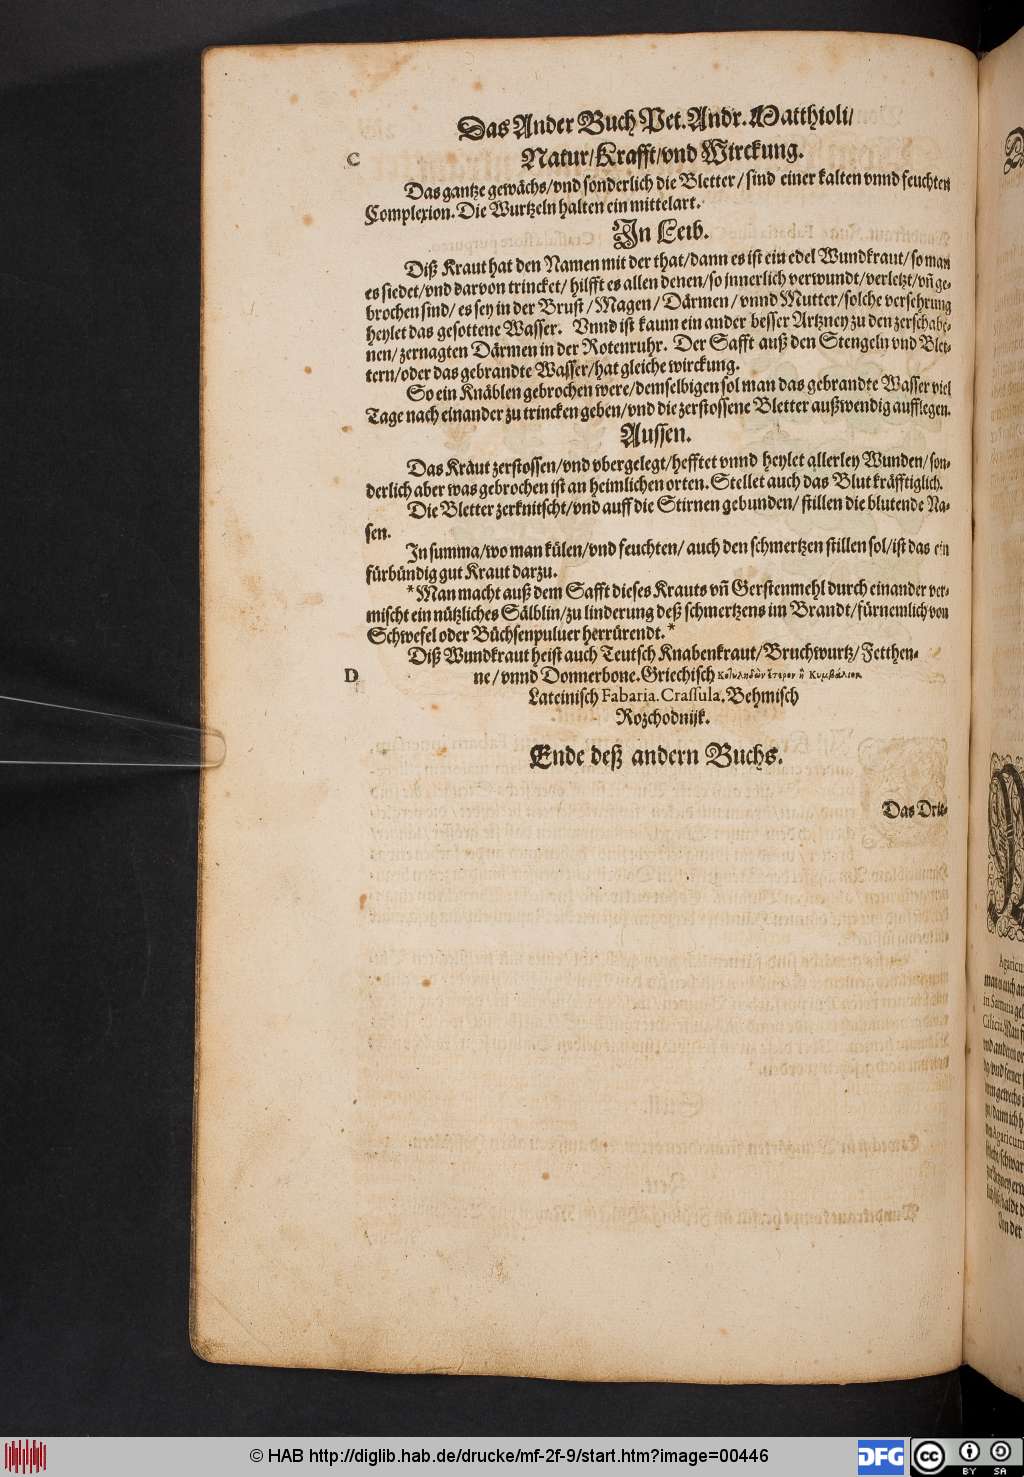 Das Ander Buch Pet. Andr. Matthioli/
C
Natur/Krafft/vnd Wirckung.
Das gantze gewächs/vnd sonderlich die Bletter/sind einer kalten vnnd feuchten
Complexion. Die Wurtzeln halten ein mittelart.
In Leib.
Diß Kraut hat den Namen mit der that/dann es ist ein edel Wundkraut/so man
es siedet/vnd darvon trincket/hilfft es allen denen/so innerlich verwundt/verletzt/vñ ge-
brochen sind/es sey in der Brust/Magen/Därmen/vnnd Mutter/solche versehrung
heylet das gesottene Wasser. Vnnd ist kaum ein ander besser Artzney zu den zerschabe-
nen/zernagten Därmen in der Rotenruhr. Der Safft auß den Stengeln vnd Blet-
tern/oder das gebrandte Wasser/hat gleiche wirckung.
So ein Knäblen gebrochen were/demselbigen sol man das gebrandte Wasser viel
Tage nach einander zu trincken geben/vnd die zerstossene Bletter außwendig aufflegen.
Aussen.
Das Kraut zerstossen/vnd vbergelegt/hefftet vnnd heylet allerley Wunden/son-
derlich aber was gebrochen ist an heimlichen orten. Stellet auch das Blut kräfftiglich.
Die Bletter zerknitscht/vnd auff die Stirnen gebunden/stillen die blutende Na-
sen.
In summa/wo man külen/vnd feuchten/auch den schmertzen stillen sol/ist das ein
fürbündig gut Kraut darzu.
*Man macht auß dem Safft dieses Krauts vñ Gerstenmehl durch einander ver-
mischt ein nützliches Sälblin/zu linderung deß schmertzens im Brandt/fürnemlich von
Schwefel oder Büchsenpuluer herrürendt.*
Diß Wundkraut heist auch Teutsch Knabenkraut/Bruchwurtz/Fetthen-
D
ne/vnnd Donnerbone. Griechisch Κοτυληδὼν ἕτερον ἢ Κυμβάλιον.
Lateinisch Fabaria. Crassula. Behmisch
Rozchodnijk.
Ende deß andern Buchs.
Das Drit-
Agaricu
© HAB http://diglib.hab.de/drucke/mf-2f-9/start.htm?image=00446
DFG
cc
BY
SA